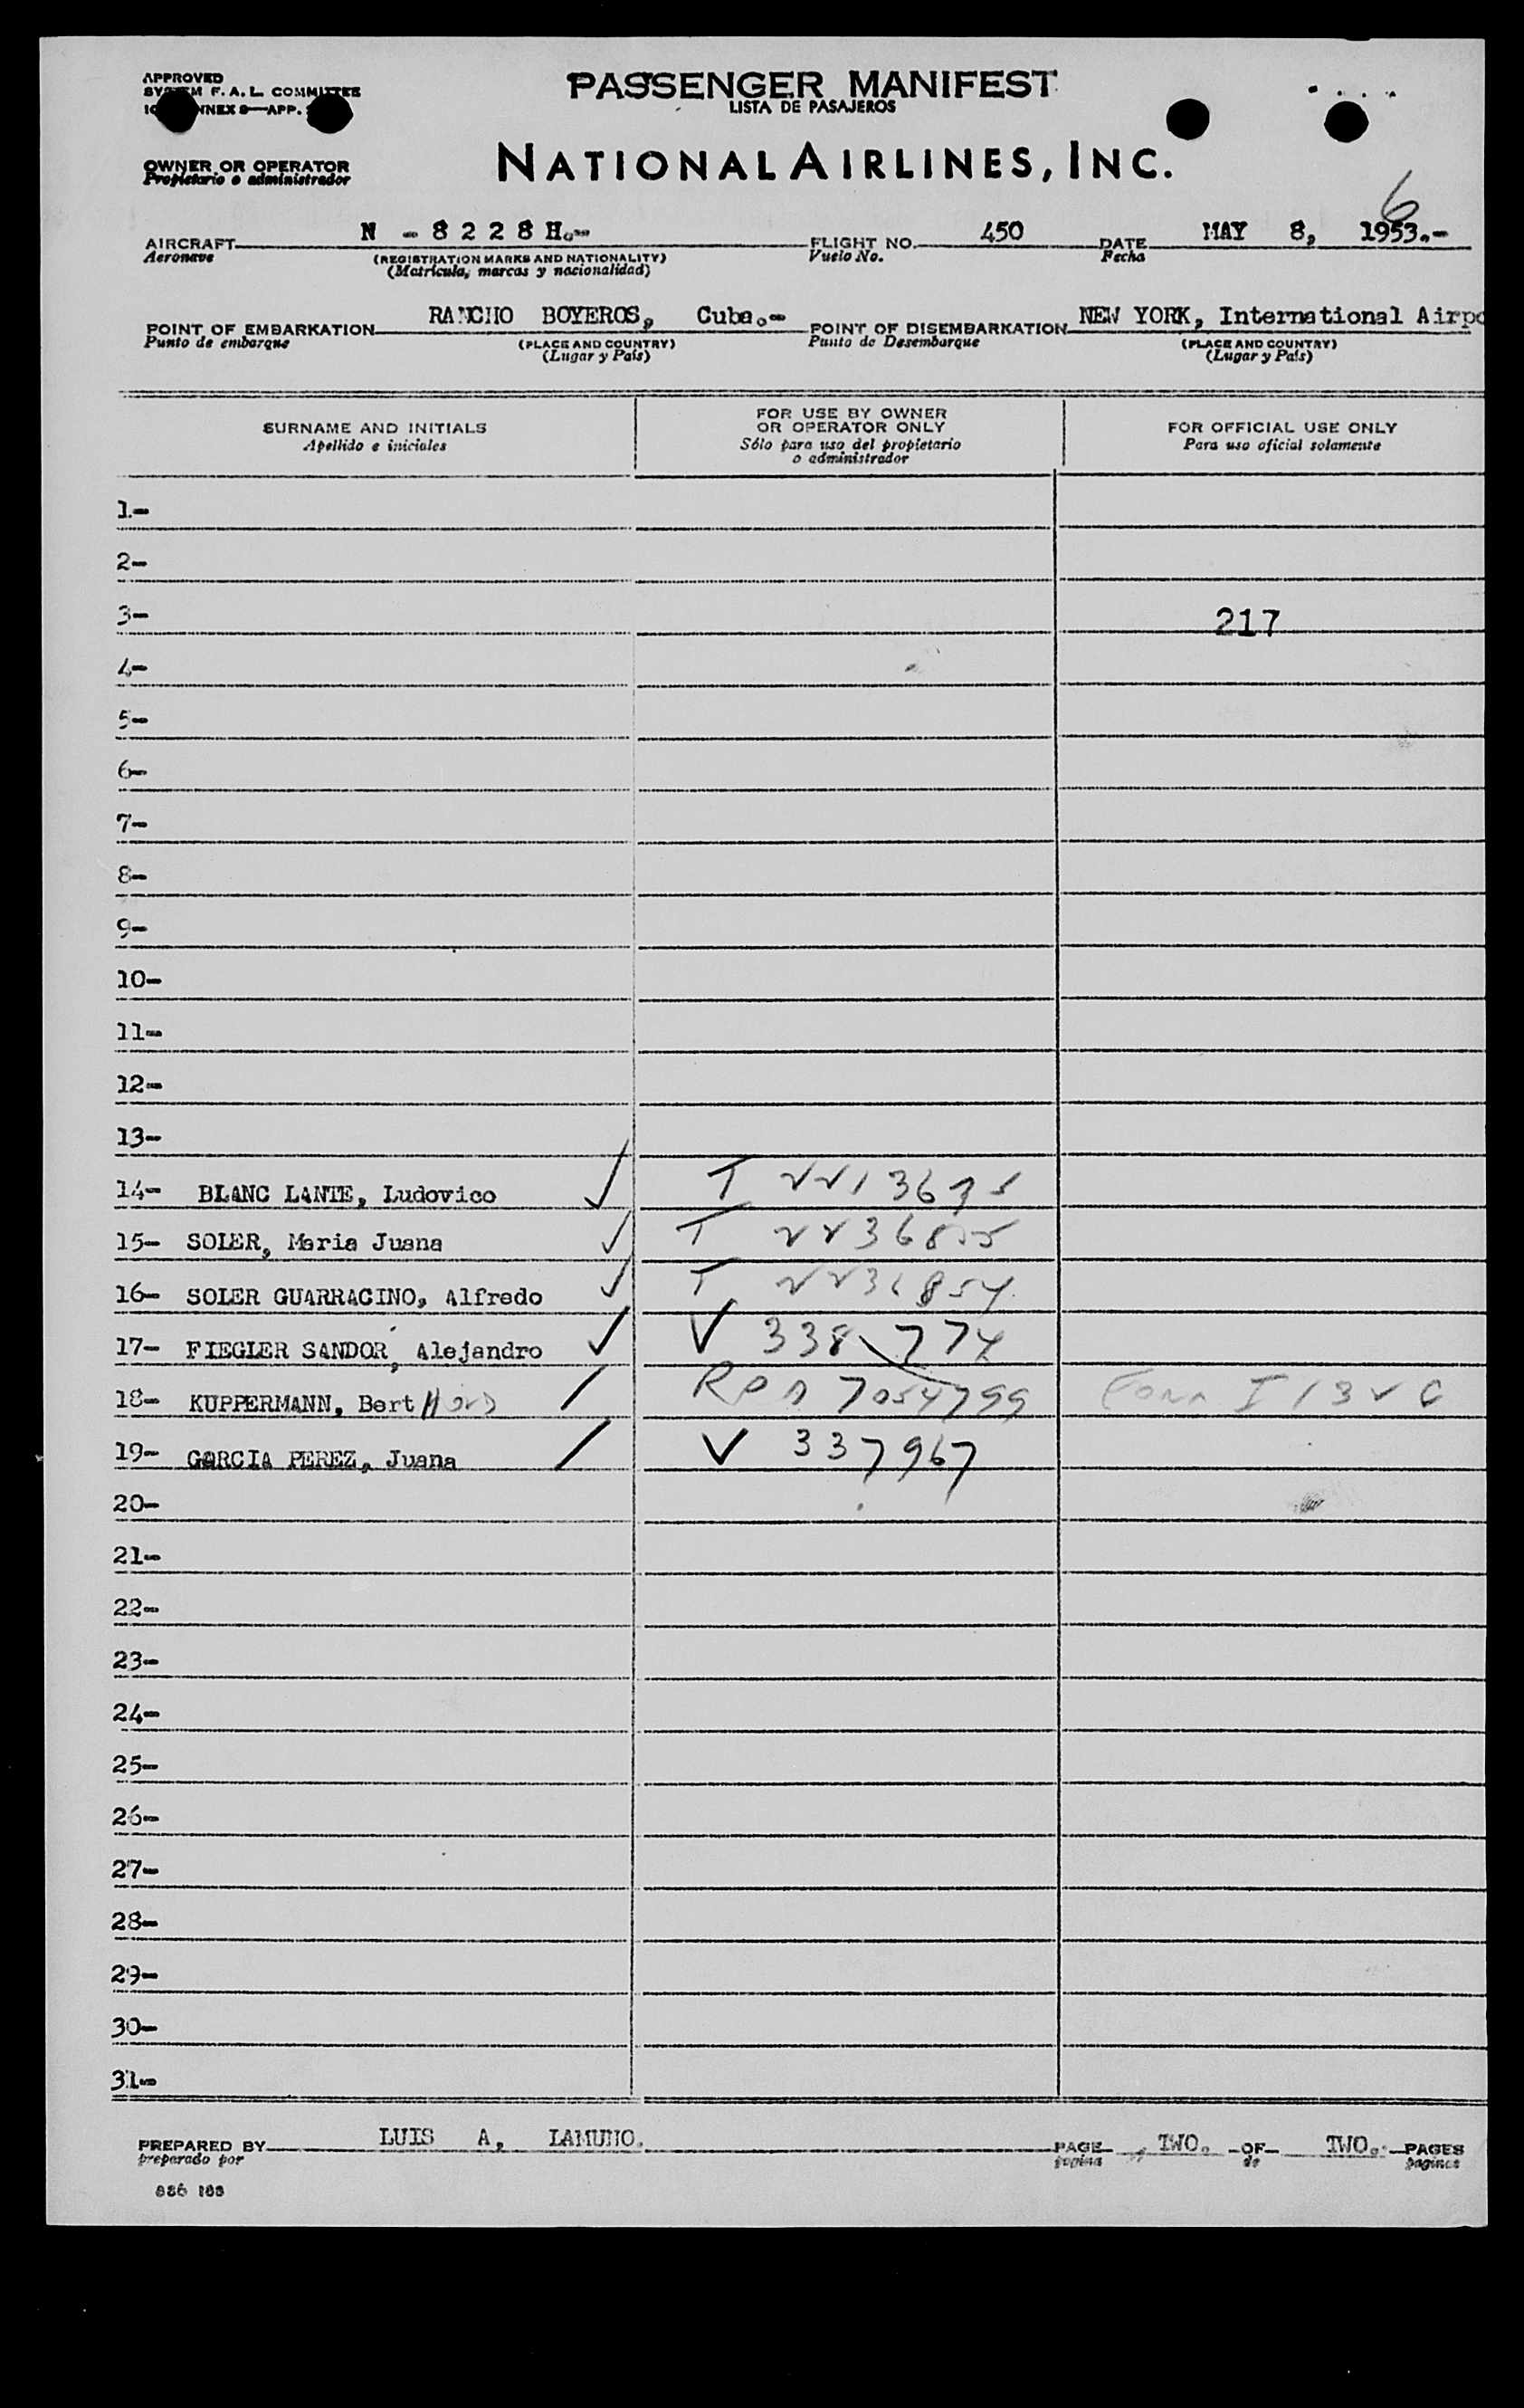 APPROVED
SYSTEM F. A. L. COMMITTEE
ANNEX 9—APP.
PASSENGER MANIFEST
LISTA DE PASAJEROS
OWNER OR OPERATOR
Propietario o administrador
NATIONAL AIRLINES, INC.
6
AIRCRAFT N - 8 2 2 8 H.- FLIGHT NO. 450 DATE MAY 8, 1953.-
Aeronave (REGISTRATION MARKS AND NATIONALITY) Vuelo No. Fecha
(Matrícula, marcas y nacionalidad)
POINT OF EMBARKATION RANCHO BOYEROS, Cuba.- POINT OF DISEMBARKATION NEW YORK, International Airpo
Punto de embarque (PLACE AND COUNTRY) Punto de Desembarque (PLACE AND COUNTRY)
(Lugar y País) (Lugar y País)
SURNAME AND INITIALS
Apellido e iniciales
FOR USE BY OWNER
OR OPERATOR ONLY
Sólo para uso del propietario
o administrador
FOR OFFICIAL USE ONLY
Para uso oficial solamente
1.-
2-
3- 217
4-
5-
6-
7-
8-
9-
10-
11-
12-
13-
14- BLANC LANTE, Ludovico T
15- SOLER, Maria Juana T
16- SOLER GUARRACINO, Alfredo T 2236854
17- FIEGLER SANDOR, Alejandro V 338774
18- KUPPERMANN, Bert 7054799 Form I
19- GARCIA PEREZ, Juana V 337967
20-
21-
22-
23-
24-
25-
26-
27-
28-
29-
30-
31-
PREPARED BY LUIS A, LAMUNO. PAGE TWO. OF TWO. PAGES
preparado por pagina de paginas